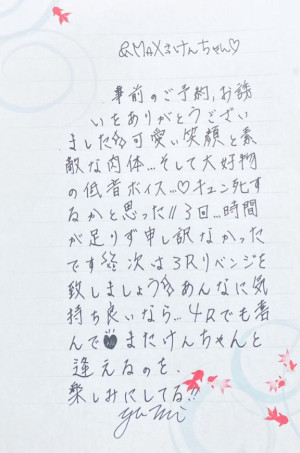 &MAXさいけんちゃん♡
事前のご予約、お誘
いをありがとうござい
ました 可愛い笑顔と素
敵な肉体…そして大好物
の低音ボイス…♡キュン死す
るかと思った!! 3回…時間
が足りず申し訳なかった
です 次は3Rリベンジを
致しましょう あんなに気
持ち良いなら…4Rでも喜
んで♥またけんちゃんと
逢えるのを、
楽しみにしてる!!
yumi